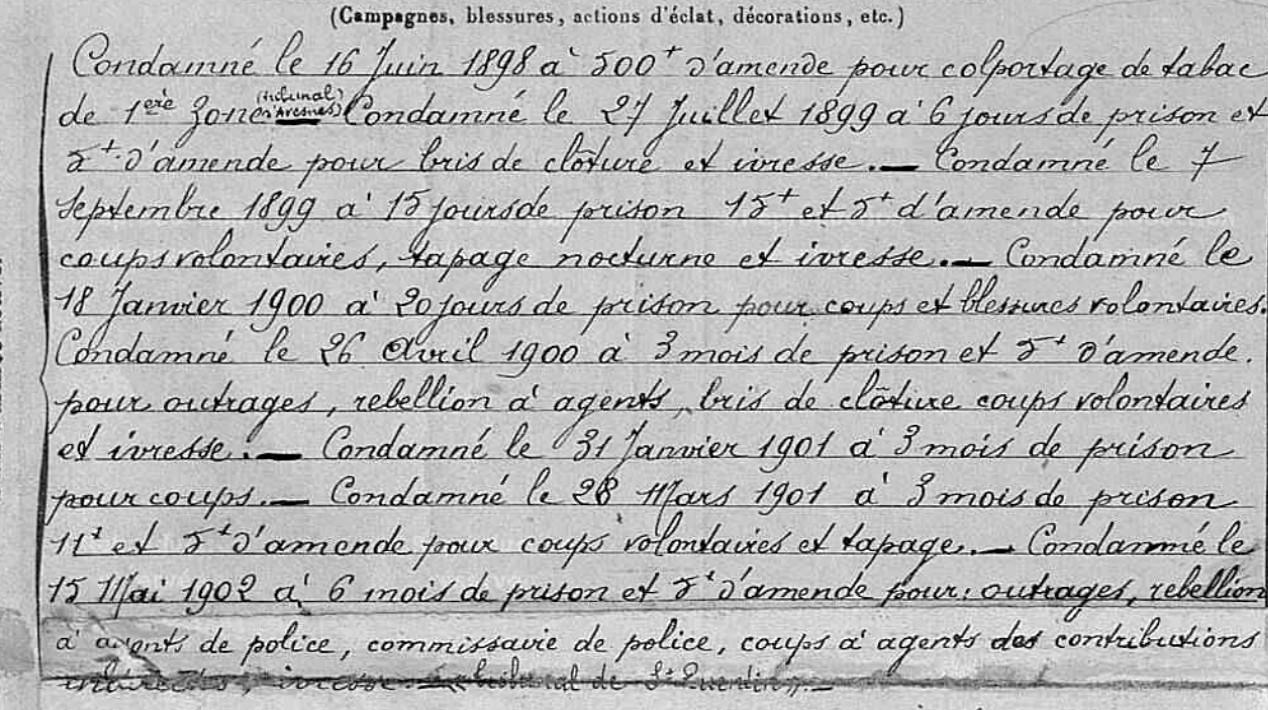 (Campagnes, blessures, actions d'éclat, décorations, etc.)
Condamné le 16 Juin 1898 à 500f d'amende pour colportage de tabac
de 1ère Zone (tribunal d'Avesnes) Condamné le 27 Juillet 1899 à 6 jours de prison et
5f d'amende pour bris de clôture et ivresse. — Condamné le 7
Septembre 1899 à 15 jours de prison 15f et 5f d'amende pour
coups volontaires, tapage nocturne et ivresse. — Condamné le
18 Janvier 1900 à 20 jours de prison pour coups et blessures volontaires.
Condamné le 26 Avril 1900 à 3 mois de prison et 5f d'amende.
pour outrages, rebellion à agents, bris de clôture coups volontaires
et ivresse. — Condamné le 31 Janvier 1901 à 3 mois de prison
pour coups. — Condamné le 28 Mars 1901 à 3 mois de prison
11f et 5f d'amende pour coups volontaires et tapage. — Condamné le
15 Mai 1902 à 6 mois de prison et 5f d'amende pour: outrages, rebellion
à agents de police, commissaire de police, coups à agents des contributions
indirectes, ivresse. — (tribunal de St Quentin). —